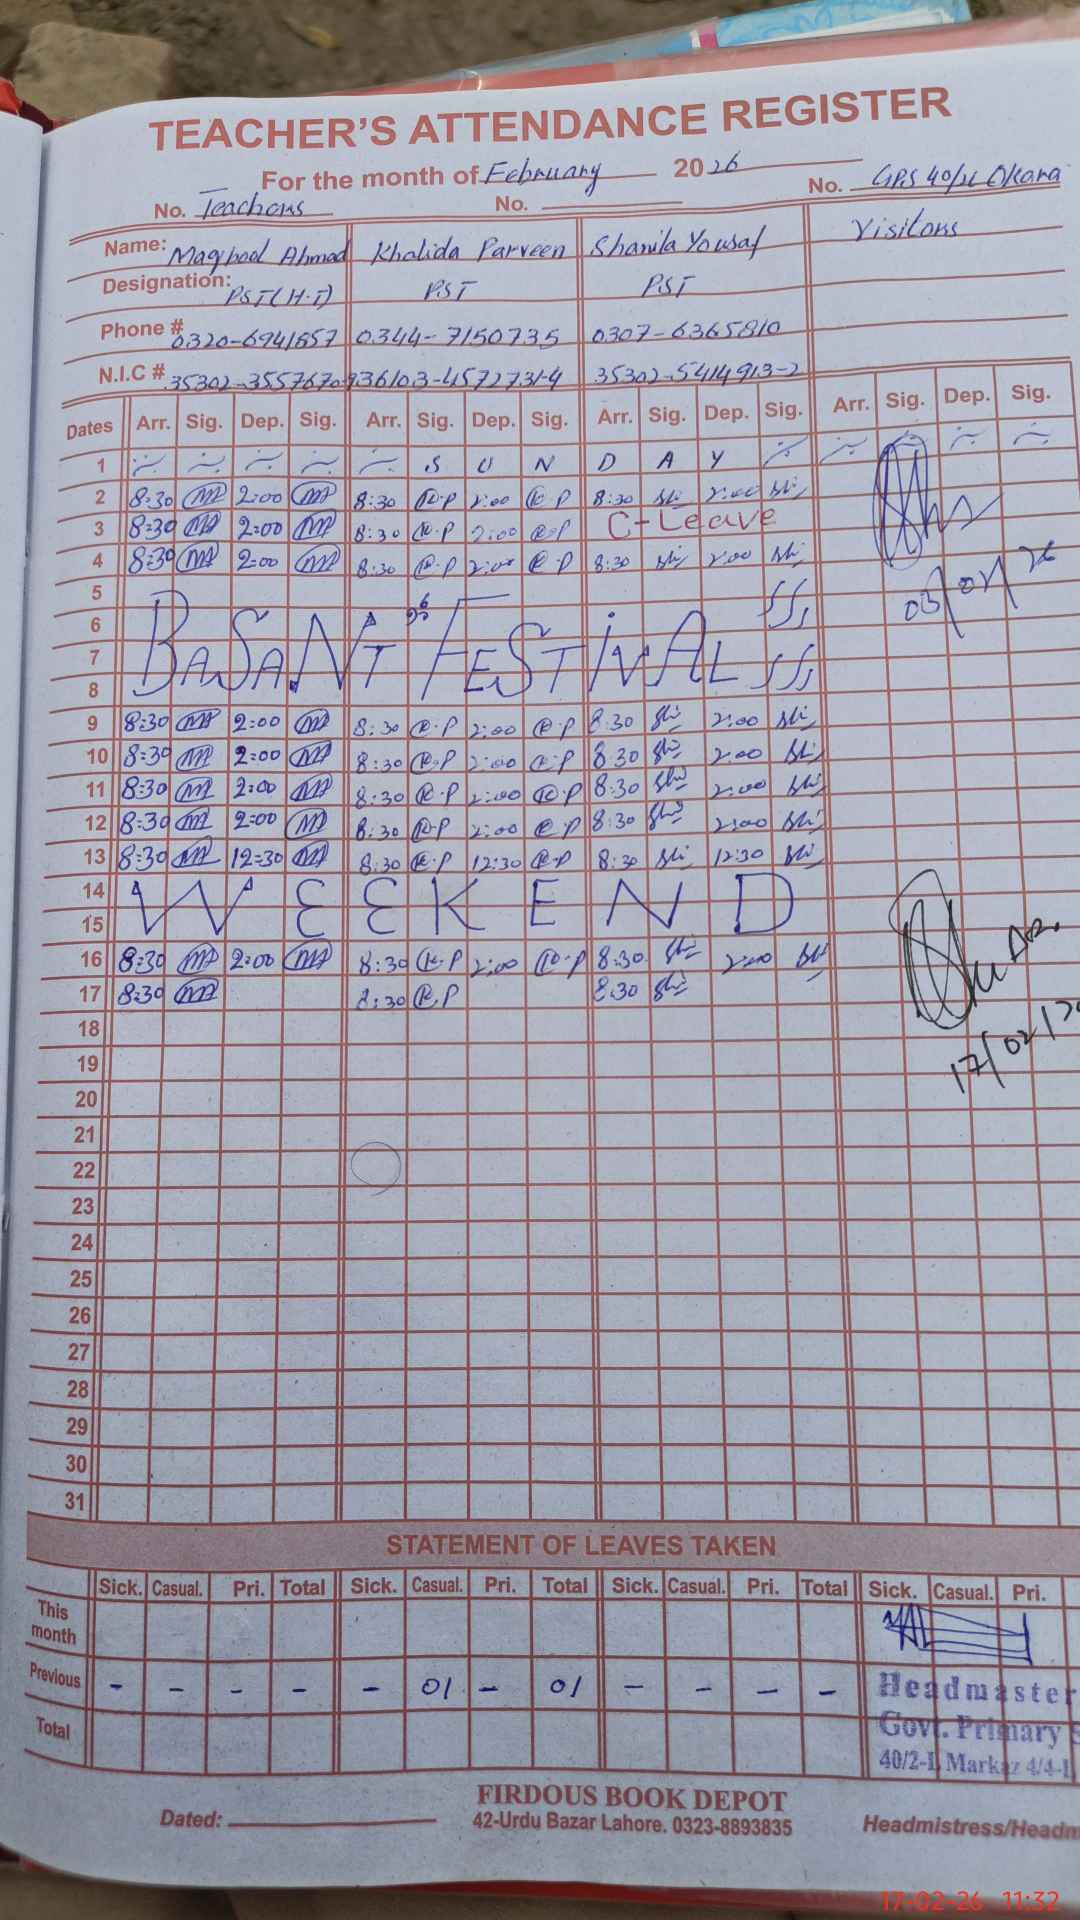 TEACHER'S ATTENDANCE REGISTER
For the month of February 2026
No. Teachers No. No. GPS 40/2L Okara
Name: Maqbool Ahmad Khalida Parveen Shanila Yousaf Visitors
Designation: PST(H.T) PST PST
Phone # 0320-6941657 0344-7150735 0307-6365810
N.I.C # 35302-3557670-9 36103-4572731-4 35302-5414913-2
Dates Arr. Sig. Dep. Sig. Arr. Sig. Dep. Sig. Arr. Sig. Dep. Sig. Arr. Sig. Dep. Sig.
1 S U N D A Y
2 8:30 2:00 8:30 K.P 2:00 K.P 8:30 Shi 2:00 Shi
3 8:30 2:00 8:30 K.P 2:00 K.P C-Leave
4 8:30 2:00 8:30 K.P 2:00 K.P 8:30 Shi 2:00 Shi
5
6 BASANT FESTIVAL
7
8
03/02/26
9 8:30 2:00 8:30 K.P 2:00 K.P 8:30 Shi 2:00 Shi
10 8:30 2:00 8:30 K.P 2:00 K.P 8:30 Shi 2:00 Shi
11 8:30 2:00 8:30 K.P 2:00 K.P 8:30 Shi 2:00 Shi
12 8:30 2:00 8:30 K.P 2:00 K.P 8:30 Shi 2:00 Shi
13 8:30 12:30 8:30 K.P 12:30 K.P 8:30 Shi 12:30 Shi
14 WEEKEND
15
16 8:30 2:00 8:30 K.P 2:00 K.P 8:30 Shi 2:00 Shi
17 8:30 8:30 K.P 8:30 Shi
17/02/2
18
19
20
21
22
23
24
25
26
27
28
29
30
31
STATEMENT OF LEAVES TAKEN
Sick. Casual. Pri. Total Sick. Casual. Pri. Total Sick. Casual. Pri. Total Sick. Casual. Pri.
This month
Previous - - - - - 01 - 01 - - - -
Total
Headmaster
Govt. Primary S
40/2-L Markaz 4/4-L
FIRDOUS BOOK DEPOT
Dated: 42-Urdu Bazar Lahore. 0323-8893835 Headmistress/Headm
17-02-26 11:32